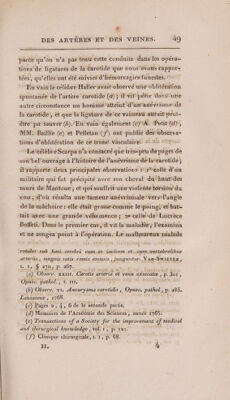 DES ARTÈRES ET DES VEINES. 49
parce qu'on n'a pas tenu cette conduite dans les opéra-
tions de ligatures de la carotide que nous avons rappor-
tées, qu'elles ont été suivies d'hémorragies funestes.
En vain le célèbre Haller avait observé une oblitération
spontanée de l'artère carotide (a); il vit périr dans une
autre circonstance un homme atteint d'un anévrisme de
la carotide, et que la ligature de ce vaisseau aurait peut-
être pu sauver (b). En vain également (c) A. Petit (d),
MM. Baillie (e) et Pelletan (f) ont publié des observa-
tions d'oblitération de ce tronc vasculaire.
Le célèbre Scarpa n'a consacré que très-peu de pages de
son bel ouvrage à l'histoire de l'anévrisme de la carotide;
il rapporte deux principales observations : 1° celle d'un
militaire qui fut précipité avec son cheval du haut des
murs de Mantoue, et qui souffrit une violente torsion du
cou, d'où résulta une tumeur anévrismale vers l'angle
de la mâchoire: elle était grosse comme le poing, et bat-
tait avec une grande véhémence; 2° celle de Lucrèce
Boffeti. Dans le premier cas, il vit la maladie, l'examina
et ne songea point à l'opération. Le malheureux malade
arteriis, magnis satis ramis
L. 1, § 170, p. 267.
(a) Observ. XXIII. Carotis arteria et vena
Opusc. pathol., t. III.
(b) Observ. VI. Aneurysma carotidis, Opusc. pathol., p. 285.
Lausannæ, 1768.
(c) Pages 2, 4, 6 de la seconde partie.
(d) Mémoires de l'Académie des Sciences, année 1765.
(e) Transactions of a Society for the improvement of medical
and chirurgical knowledge, vol. 1, p. 121.
(f) Clinique chirurgicale, t. 1, p. 68.
II. 4